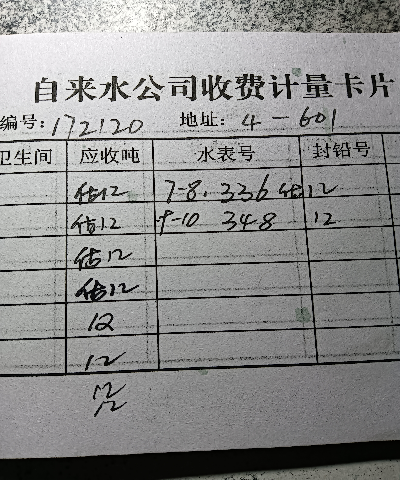 自来水公司收费计量卡片
编号: 172120 地址: 4-601
卫生间 应收吨 水表号 封铅号
估12 7-8. 336 估12
估12 9-10 348 12
估12
估12
12
12
12
12